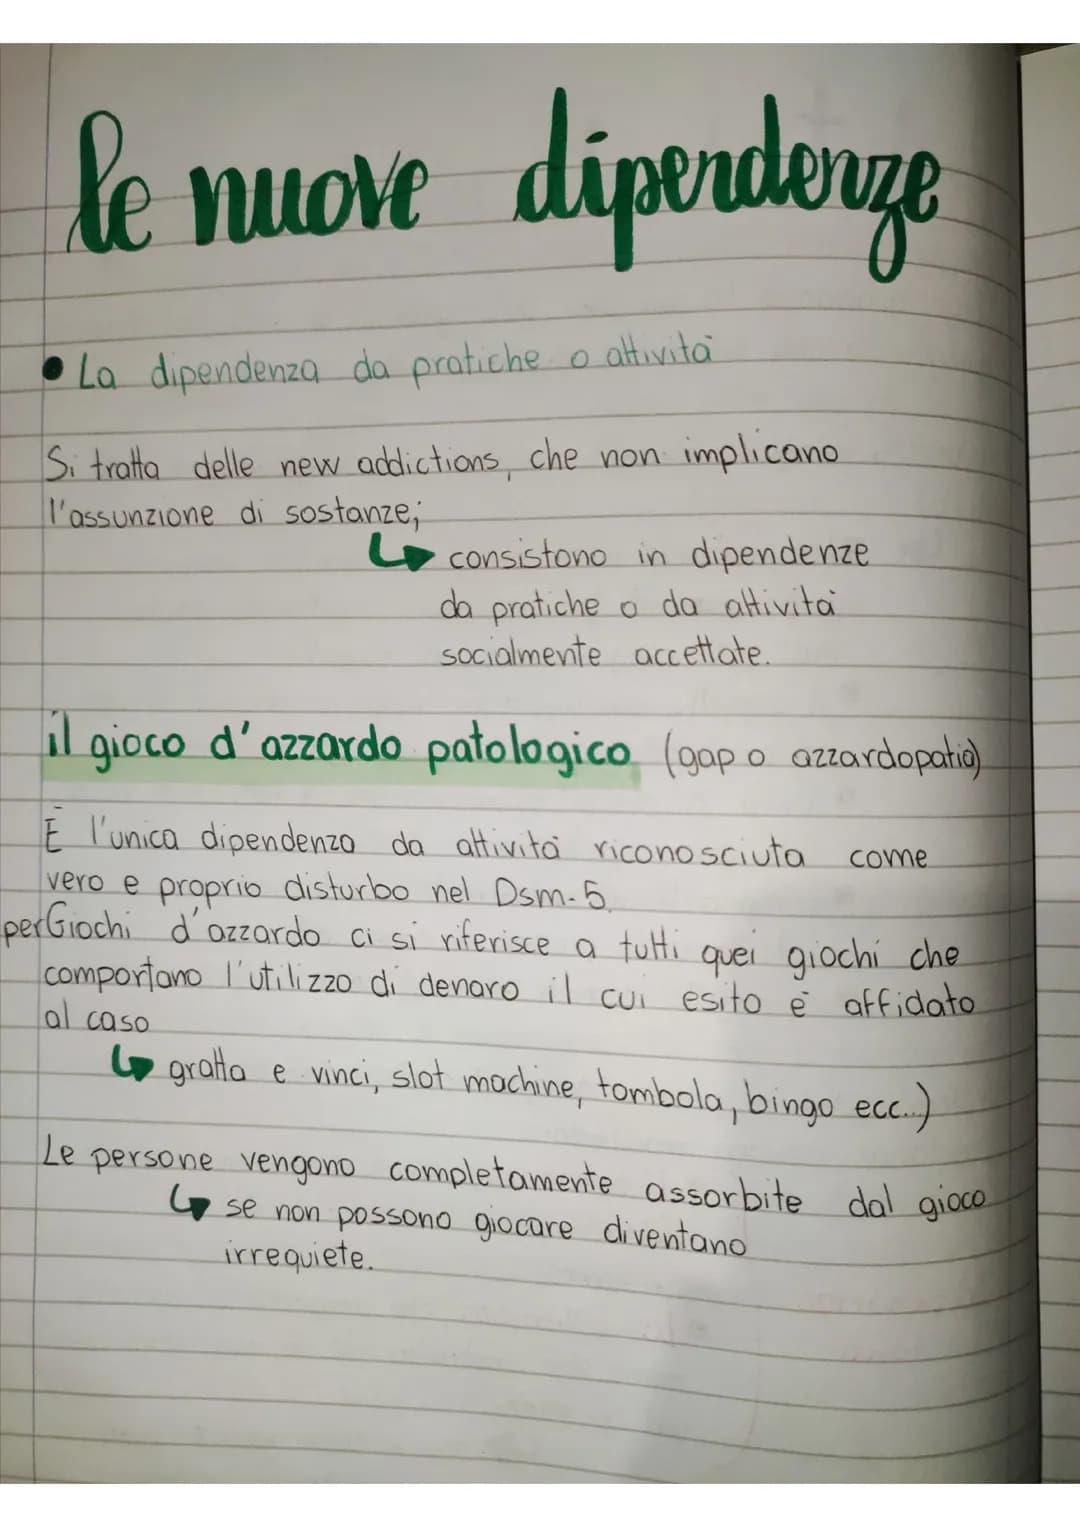 le nuove dipendenze
• La dipendenza da pratiche o attività
Si tratta delle new addictions, che non implicano
l'assunzione di sostanze;
↳ consistono in dipendenze
da pratiche o da attività
socialmente accettate.
il gioco d'azzardo patologico (gap o azzardopatia)
È l'unica dipendenza da attività riconosciuta come
vero e proprio disturbo nel Dsm-5.
perGiochi d'azzardo ci si riferisce a tutti quei giochi che
comportano l'utilizzo di denaro il cui esito è affidato
al caso
↳ gratta e vinci, slot machine, tombola, bingo ecc...)
Le persone vengono completamente assorbite dal gioco
↳ se non possono giocare diventano
irrequiete.